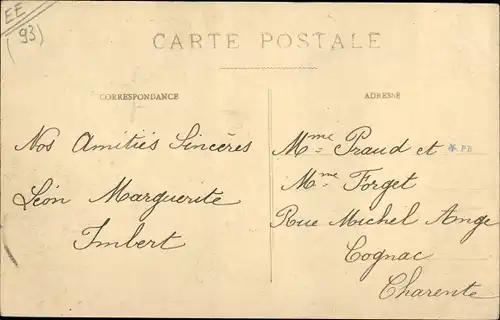 EE
(93)
CARTE POSTALE
CORRESPONDANCE
Nos Amitiés Sincères
Léon Marguerite
Imbert
ADRESSE
Mme Praud et
* PB
Mme Forget
Rue Michel Ange
Cognac
Charente